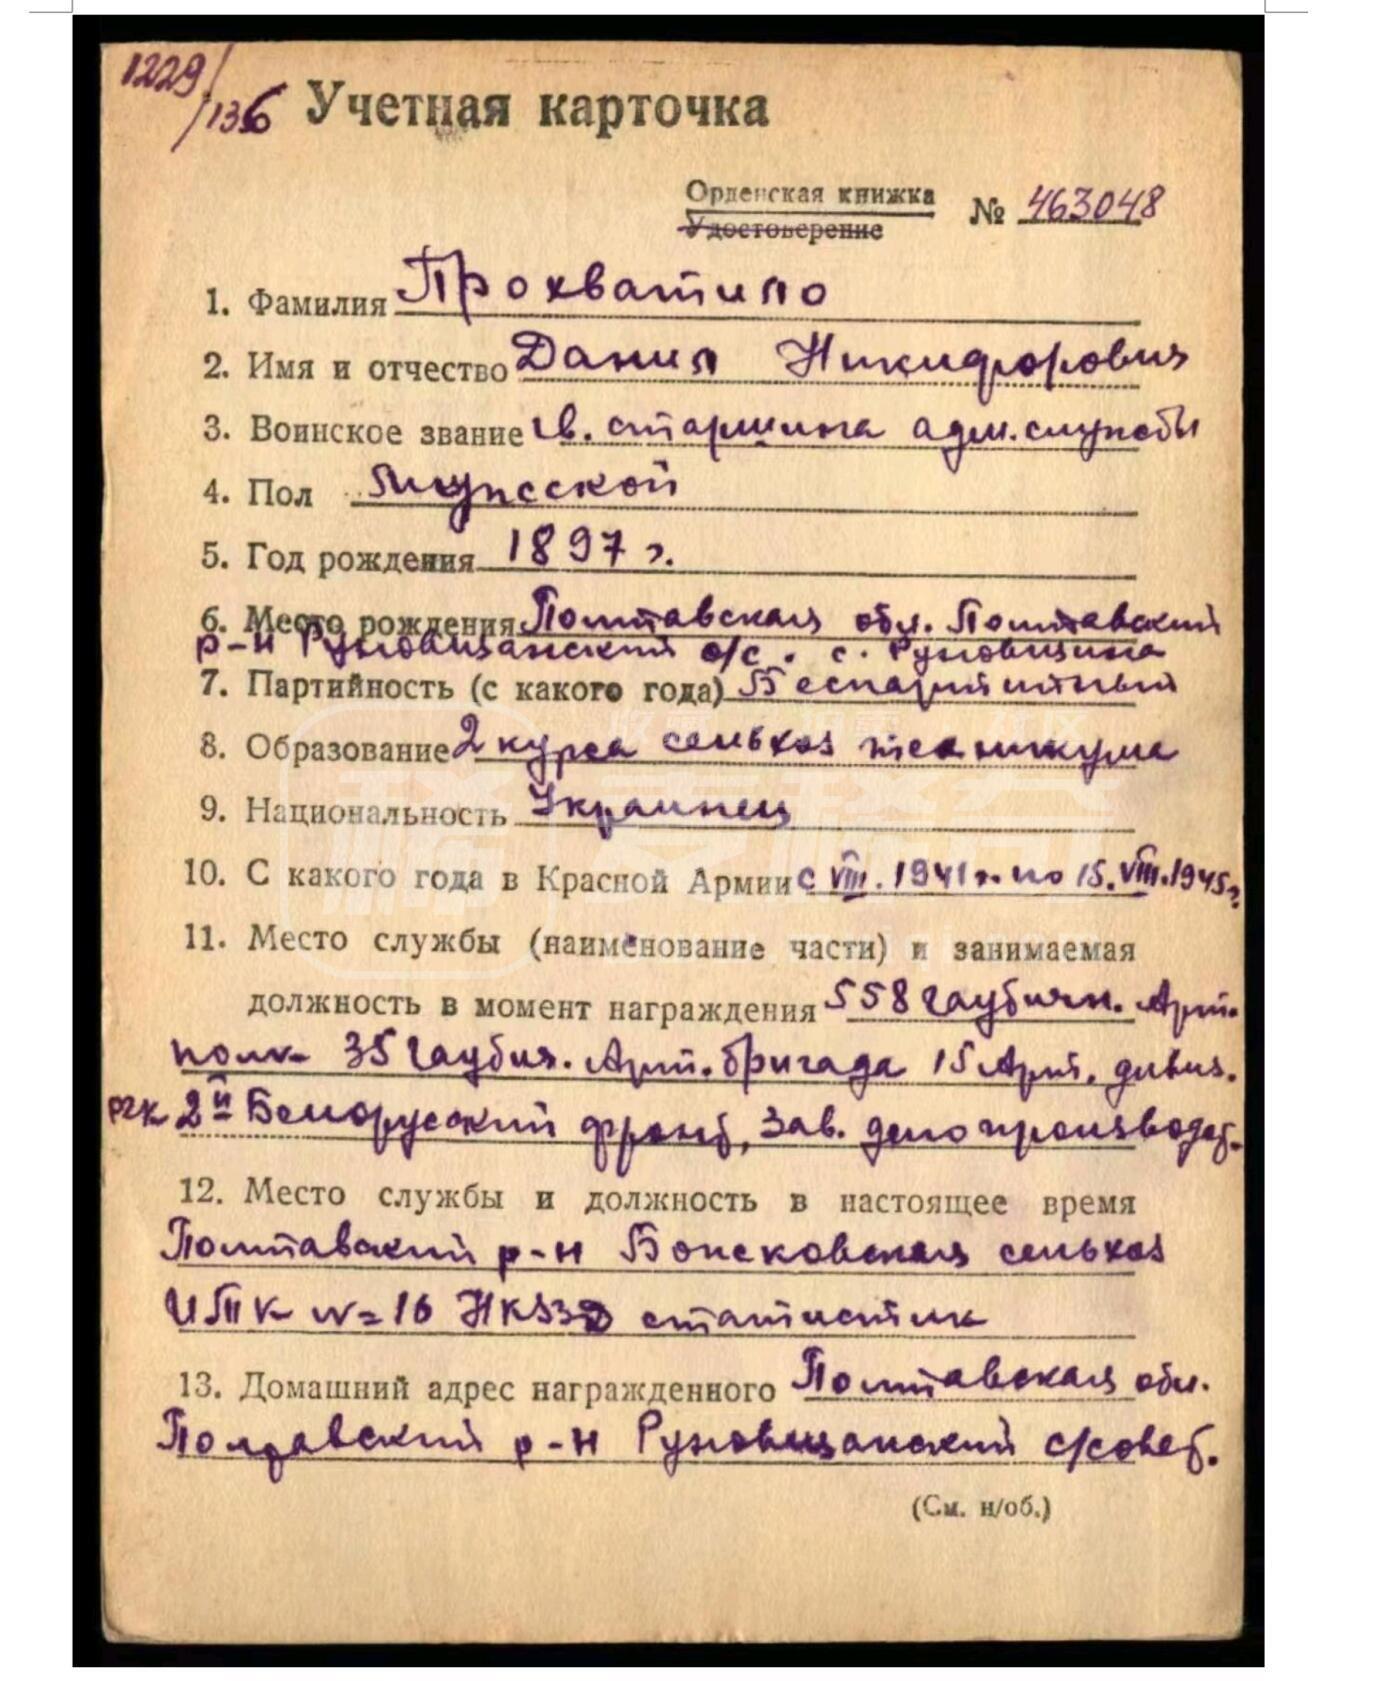 1229/
/136
Учетная карточка
Орденская книжка
Удостоверение
№ 463048
1. Фамилия Прохватило
2. Имя и отчество Данил Никифорович
3. Воинское звание гв. старшина адм. службы
4. Пол Мужсской
5. Год рождения 1897 г.
6. Место рождения Полтавская обл. Полтавский
р-н Руновщанский с/с. с. Руновщина
7. Партийность (с какого года) Беспартийный
8. Образование 2 курса сельхоз техникума
9. Национальность Украинец
10. С какого года в Красной Армии с VIII. 1941 г. по 15. VIII. 1945 г.
11. Место службы (наименование части) и занимаемая
должность в момент награждения 558 гаубичн. Арт.
полк 35 гаубич. Арт. бригада 15 Арт. дивиз.
РГК 2й Белорусский фронт, Зав. делопроизводст.
12. Место службы и должность в настоящее время
Полтавский р-н сельхоз
ИТК №16 статистик
13. Домашний адрес награжденного Полтавская обл.
Полтавский р-н Руновщанский с/совет.
(См. н/об.)